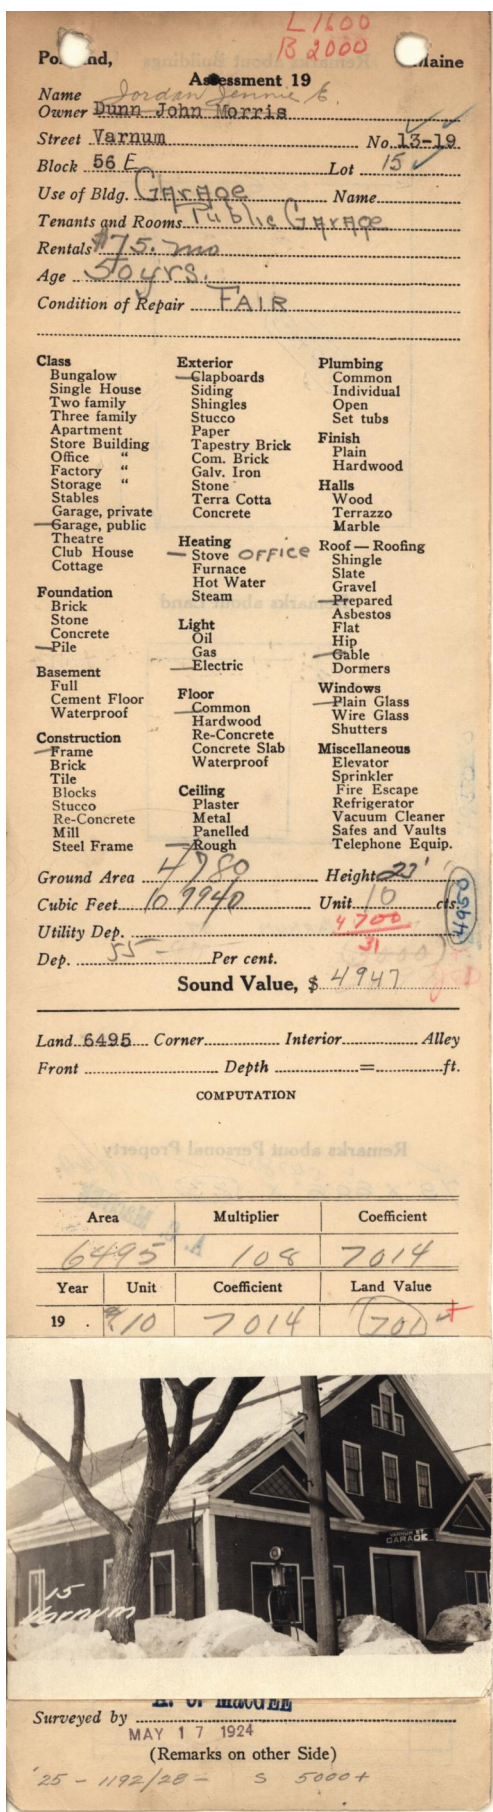 L 1600
B 2000
Portland, Maine
Assessment 19
Name Jordan Jennie E.
Owner Dunn John Morris
Street Varnum No. 13-19
Block 56 E Lot 15
Use of Bldg. GARAGE Name
Tenants and Rooms Public GARAGE
Rentals $75. mo
Age 50 yrs.
Condition of Repair FAIR
Class
Bungalow
Single House
Two family
Three family
Apartment
Store Building
Office "
Factory "
Storage "
Stables
Garage, private
Garage, public
Theatre
Club House
Cottage
Foundation
Brick
Stone
Concrete
Pile
Basement
Full
Cement Floor
Waterproof
Construction
Frame
Brick
Tile
Blocks
Stucco
Re-Concrete
Mill
Steel Frame
Exterior
Clapboards
Siding
Shingles
Stucco
Paper
Tapestry Brick
Com. Brick
Galv. Iron
Stone
Terra Cotta
Concrete
Heating
Stove OFFICE
Furnace
Hot Water
Steam
Light
Oil
Gas
Electric
Floor
Common
Hardwood
Re-Concrete
Concrete Slab
Waterproof
Ceiling
Plaster
Metal
Panelled
Rough
Plumbing
Common
Individual
Open
Set tubs
Finish
Plain
Hardwood
Halls
Wood
Terrazzo
Marble
Roof — Roofing
Shingle
Slate
Gravel
Prepared
Asbestos
Flat
Hip
Gable
Dormers
Windows
Plain Glass
Wire Glass
Shutters
Miscellaneous
Elevator
Sprinkler
Fire Escape
Refrigerator
Vacuum Cleaner
Safes and Vaults
Telephone Equip.
Ground Area 4780 Height 23'
Cubic Feet 109940 Unit 10 cts.
4950
Utility Dep. 4700
31
Dep. 55 Per cent.
Sound Value, $ 4947
Land 6495 Corner Interior Alley
Front Depth = ft.
COMPUTATION
Area Multiplier Coefficient
6495 108 7014
Year Unit Coefficient Land Value
19 . 10 7014 701
VARNUM ST.
GARAGE
15
Varnum
Surveyed by
MAY 17 1924
(Remarks on other Side)
'25 - 1192/28 - S 5000+